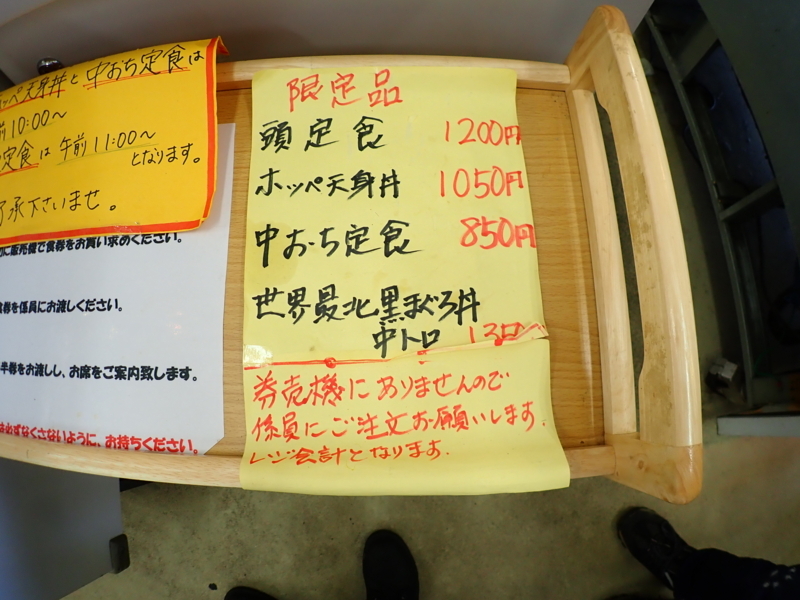 ッペ天身丼と中おち定食は
前10:00〜
定食は午前11:00〜
となります。
了承下さいませ。
に販売機で食券をお買い求めください。
食券を係員にお渡しください。
半券をお渡しし、お席をご案内致します。
必ずなくさないように、お持ちください。
限定品
頭定食 1200円
ホッペ天身丼 1050円
中おち定食 850円
世界最北黒まぐろ丼
中トロ
券売機にありませんので
係員にご注文お願いします.
レジ会計となります.